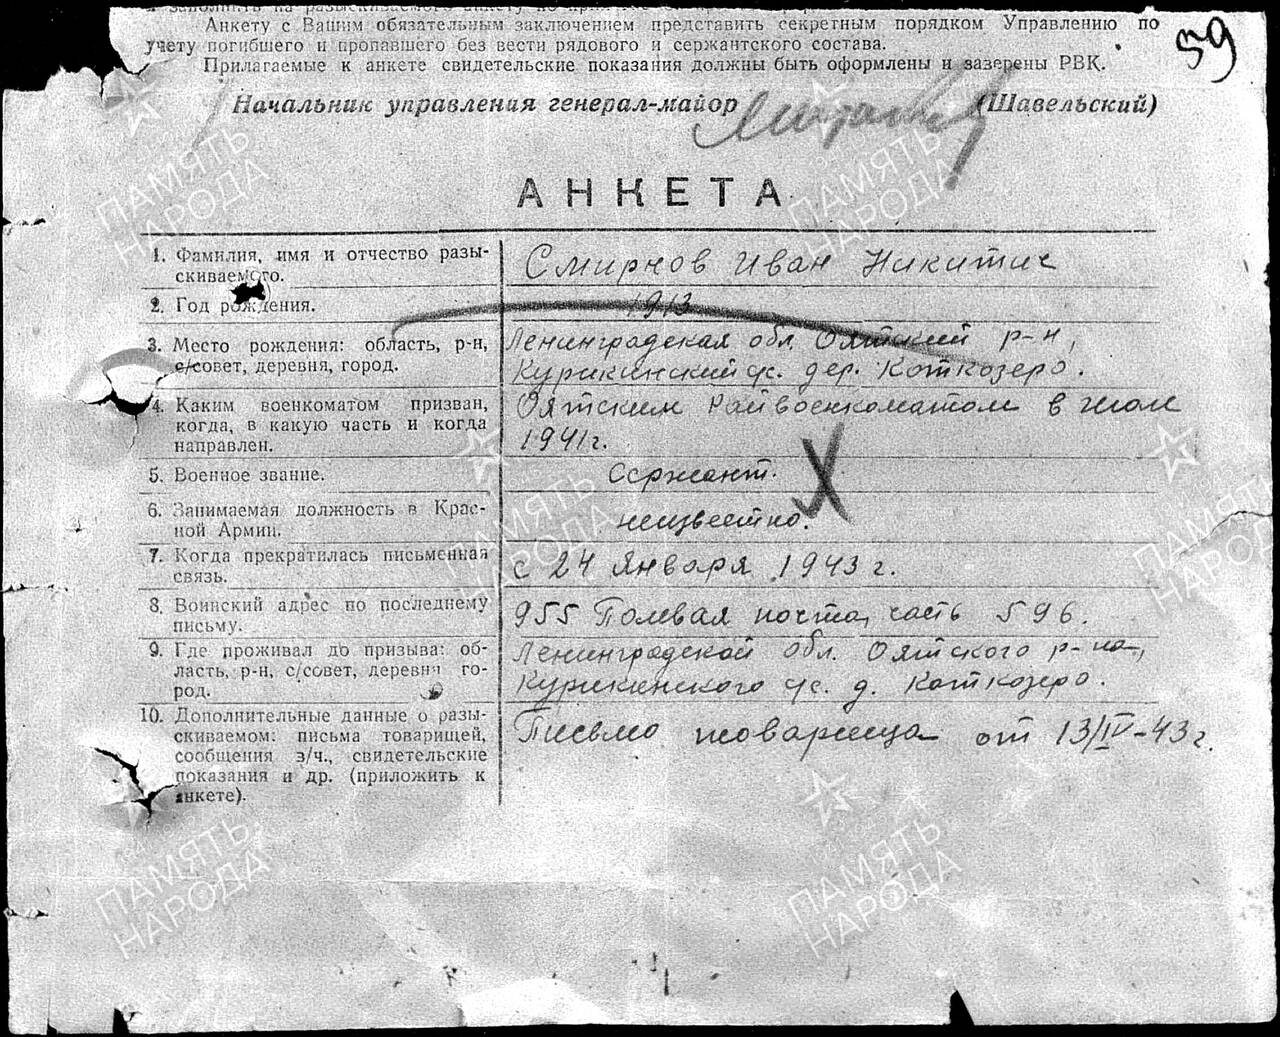 заполнить на разыскиваемого анкету
Анкету с Вашим обязательным заключением представить секретным порядком Управлению по
учету погибшего и пропавшего без вести рядового и сержантского состава.
Прилагаемые к анкете свидетельские показания должны быть оформлены и заверены РВК.
59
Начальник управления генерал-майор (Шавельский)
АНКЕТА
1. Фамилия, имя и отчество разыскиваемого. Смирнов Иван Никитич
2. Год рождения. 1913
3. Место рождения: область, р-н, Ленинградская обл. Оятский р-н,
с/совет, деревня, город. Курикинский с/с. дер. Коткозеро.
4. Каким военкоматом призван, Оятским Райвоенкоматом в июле
когда, в какую часть и когда 1941г.
направлен.
5. Военное звание. Сержант.
6. Занимаемая должность в Крас-
ной Армии. неизвестно.
7. Когда прекратилась письменная
связь. с 24 января 1943 г.
8. Воинский адрес по последнему 955 Полевая почта, часть 596.
письму.
9. Где проживал до призыва: об- Ленинградской обл. Оятского р-на,
ласть, р-н, с/совет, деревня го- Курикинского с/с. д. Коткозеро.
род.
10. Дополнительные данные о разы- Письмо товарища от 13/IV-43г.
скиваемом: письма товарищей,
сообщения з/ч., свидетельские
показания и др. (приложить к
анкете).
ПАМЯТЬ
НАРОДА
ПАМЯТЬ
НАРОДА
ПАМЯТЬ
НАРОДА
ПАМЯТЬ
НАРОДА
ПАМЯТЬ
НАРОДА
ПАМЯТЬ
НАРОДА